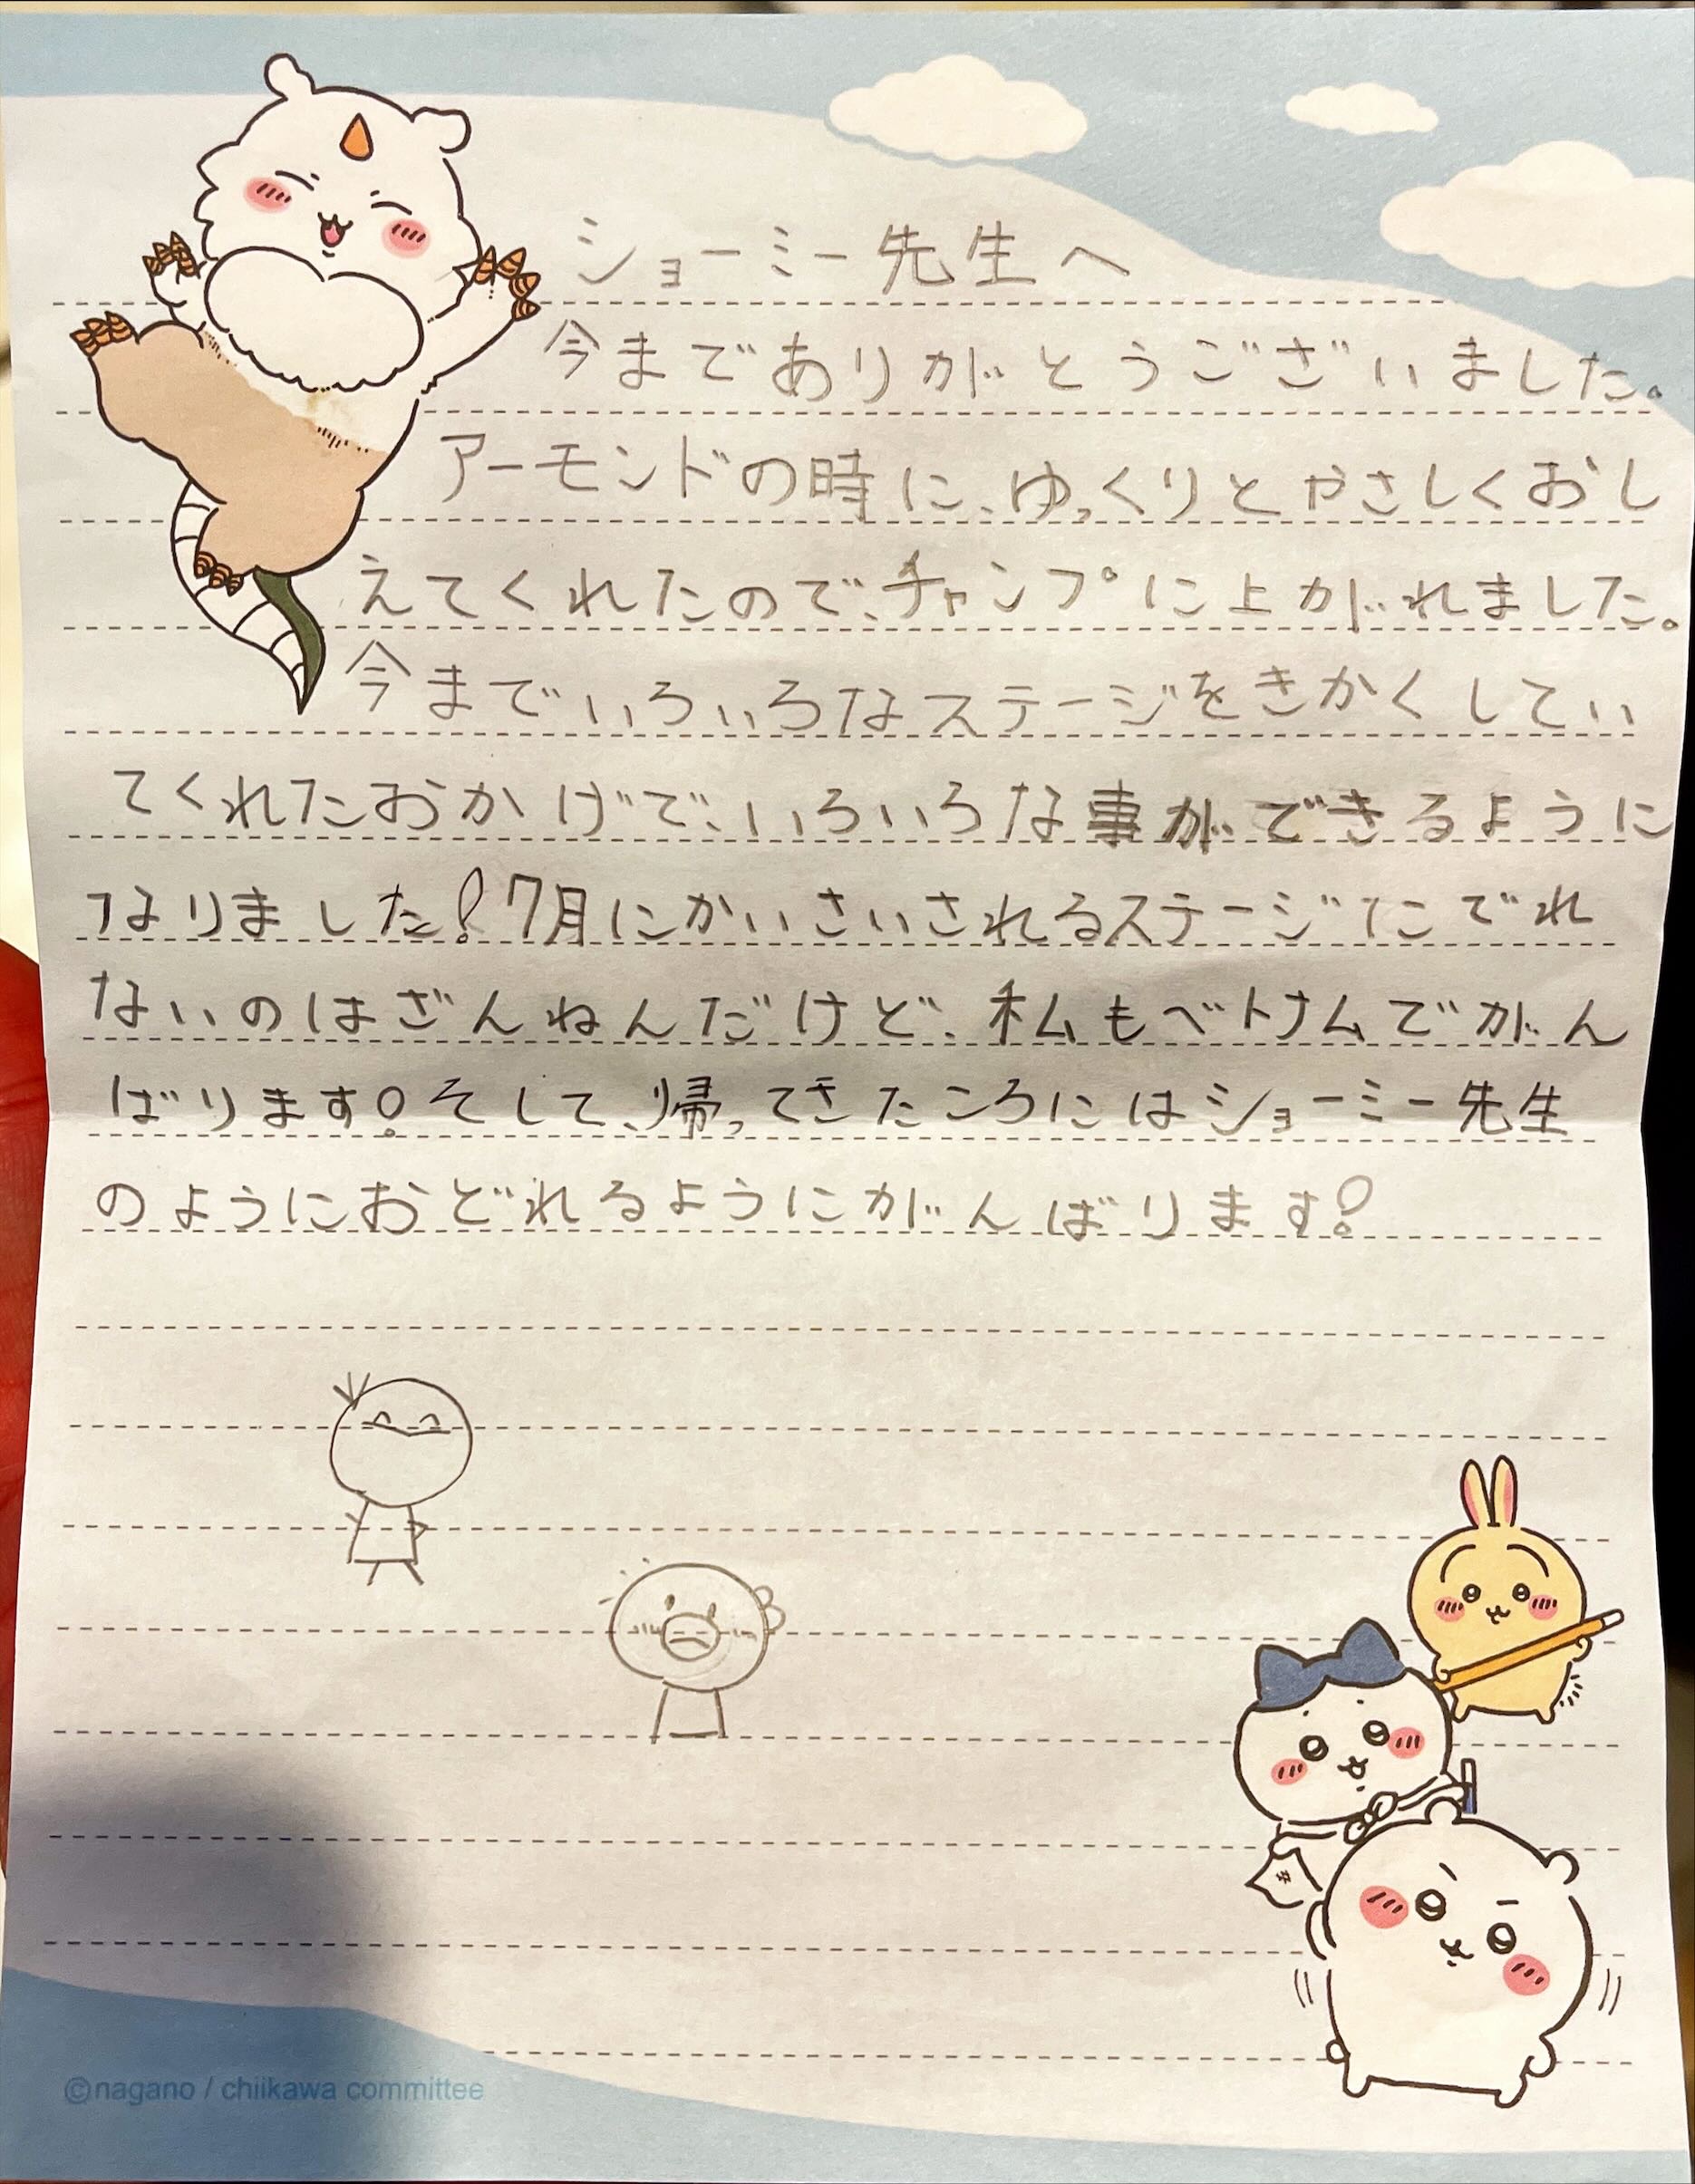 ショーミー先生へ
今までありがとうございました。
アーモンドの時に、ゆっくりとやさしくおし
えてくれたので、チャンプに上がれました。
今までいろいろなステージをきかくしてい
てくれたおかげで、いろいろな事ができるように
なりました!7月にかいさいされるステージにでれ
ないのはざんねんだけど、私もベトナムでがん
ばります!そして、帰ってきたころにはショーミー先生
のようにおどれるようにがんばります!
©nagano / chiikawa committee